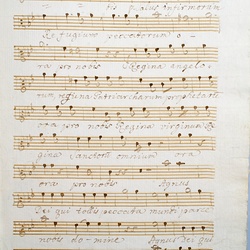 tis Salus infirmorum
Refugium peccatorum o-
ra pro nobis Regina angelo-
rum regina Patriarcharum prophetarum
ora pro nobis Regina virginum Re
gina sanctorum omnium ora
ora pro nobis Agnus
Dei qui tollis peccata mundi parce
nobis domine Agnus Dei qui